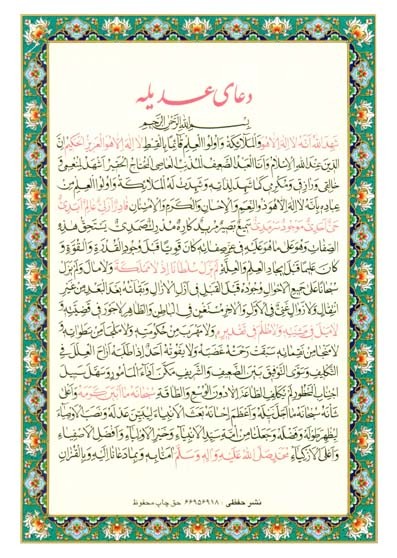 دعای عدیله
بِسْمِ اللهِ الرَّحْمنِ الرَّحِیمِ
شَهِدَ اللهُ اَنَّهُ لا اِلهَ اِلاَّ هُوَ وَالْمَلائِکَةُ وَاُولُوا الْعِلْمِ قآئِماً بِالْقِسْطِ لا اِلهَ اِلاَّ هُوَ الْعَزیزُ الْحَکیمُ اِنَّ
الدّینَ عِنْدَ اللهِ الاِسْلامُ وَاَنَا الْعَبْدُ الضَّعیفُ الْمُذْنِبُ الْعاصِی الْمُحْتاجُ الْحَقیرُ اَشْهَدُ لِمُنْعِمی وَ
خالِقی وَرازِقی وَمُکْرِمی کَما شَهِدَ لِذاتِهِ وَشَهِدَتْ لَهُ الْمَلائِکَةُ وَاُولُوا الْعِلْمِ مِنْ
عِبادِهِ بِاَنَّهُ لا اِلهَ اِلاَّ هُوَ ذُوالنِّعَمِ وَالاِحْسانِ وَالْکَرَمِ وَالاِمْتِنانِ قادِرٌ اَزَلِیٌّ عالِمٌ اَبَدِیٌّ
حَیٌّ اَحَدِیٌّ مَوْجُودٌ سَرْمَدِیٌّ سَمیعٌ بَصیرٌ مُریدٌ کارِهٌ مُدْرِکٌ صَمَدِیٌّ یَسْتَحِقُّ هذِهِ
الصِّفاتِ وَهُوَ عَلی ما هُوَ عَلَیْهِ فی عِزِّ صِفاتِهِ کانَ قَوِیّاً قَبْلَ وُجُودِ الْقُدْرَةِ وَالْقُوَّةِ وَ
کانَ عَلیماً قَبْلَ ایجادِ الْعِلْمِ وَالْعِلَّةِ لَمْ یَزَلْ سُلْطاناً اِذْ لا مَمْلَکَةَ وَلا مالَ وَلَمْ یَزَلْ
سُبْحاناً عَلی جَمیعِ الاَحْوالِ وُجُودُهُ قَبْلَ الْقَبْلِ فی اَزَلِ الاَزالِ وَبَقآئُهُ بَعْدَ الْبَعْدِ مِنْ غَیْرِ
اِنْتِقالٍ وَلا زَوالٍ غَنِیٌّ فِی الاَوَّلِ وَالاخِرِ مُسْتَغْنٍ فِی الْباطِنِ وَالظّاهِرِ لا جَوْرَ فی قَضِیَّتِهِ وَ
لا مَیْلَ فی مَشِیَّتِهِ وَلا ظُلْمَ فی تَقْدیرِهِ وَلا مَهْرَبَ مِنْ حُکُومَتِهِ وَلا مَلْجَاَ مِنْ سَطَواتِهِ وَ
لا مَنْجا مِنْ نَقِماتِهِ سَبَقَتْ رَحْمَتُهُ غَضَبَهُ وَلا یَفُوتُهُ اَحَدٌ اِذا طَلَبَهُ اَزاحَ الْعِلَلَ فِی
التَّکْلیفِ وَسَوَّی التَّوْفیقَ بَیْنَ الضَّعیفِ وَالشَّریفِ مَکَّنَ اَدآءَ الْمَاْمُورِ وَسَهَّلَ سَبیلَ
اجْتِنابِ الْمَحْظُورِ لَمْ یُکَلِّفِ الطّاعَةَ اِلاَّ دُونَ الْوُسْعِ وَالطّاقَةِ سُبْحانَهُ ما اَبْیَنَ کَرَمَهُ وَاَعْلی
شَاْنَهُ سُبْحانَهُ ما اَجَلَّ نَیْلَهُ وَاَعْظَمَ اِحْسانَهُ بَعَثَ الاَنْبِیآءَ لِیُبَیِّنَ عَدْلَهُ وَنَصَبَ الاَوْصِیآءَ
لِیُظْهِرَ طَوْلَهُ وَفَضْلَهُ وَجَعَلَنا مِنْ اُمَّةِ سَیِّدِ الاَنْبِیآءِ وَخَیْرِ الاَوْلِیآءِ وَاَفْضَلِ الاَصْفِیآءِ
وَاَعْلَی الاَزْکِیآءِ مُحَمَّدٍ صَلَّی اللهُ عَلَیْهِ وَآلِهِ وَسَلَّمَ آمَنّا بِهِ وَبِما دَعانا اِلَیْهِ وَبِالْقُرْآنِ
نشر حفظی : ۶۶۹۵۶۹۱۸ حق چاپ محفوظ